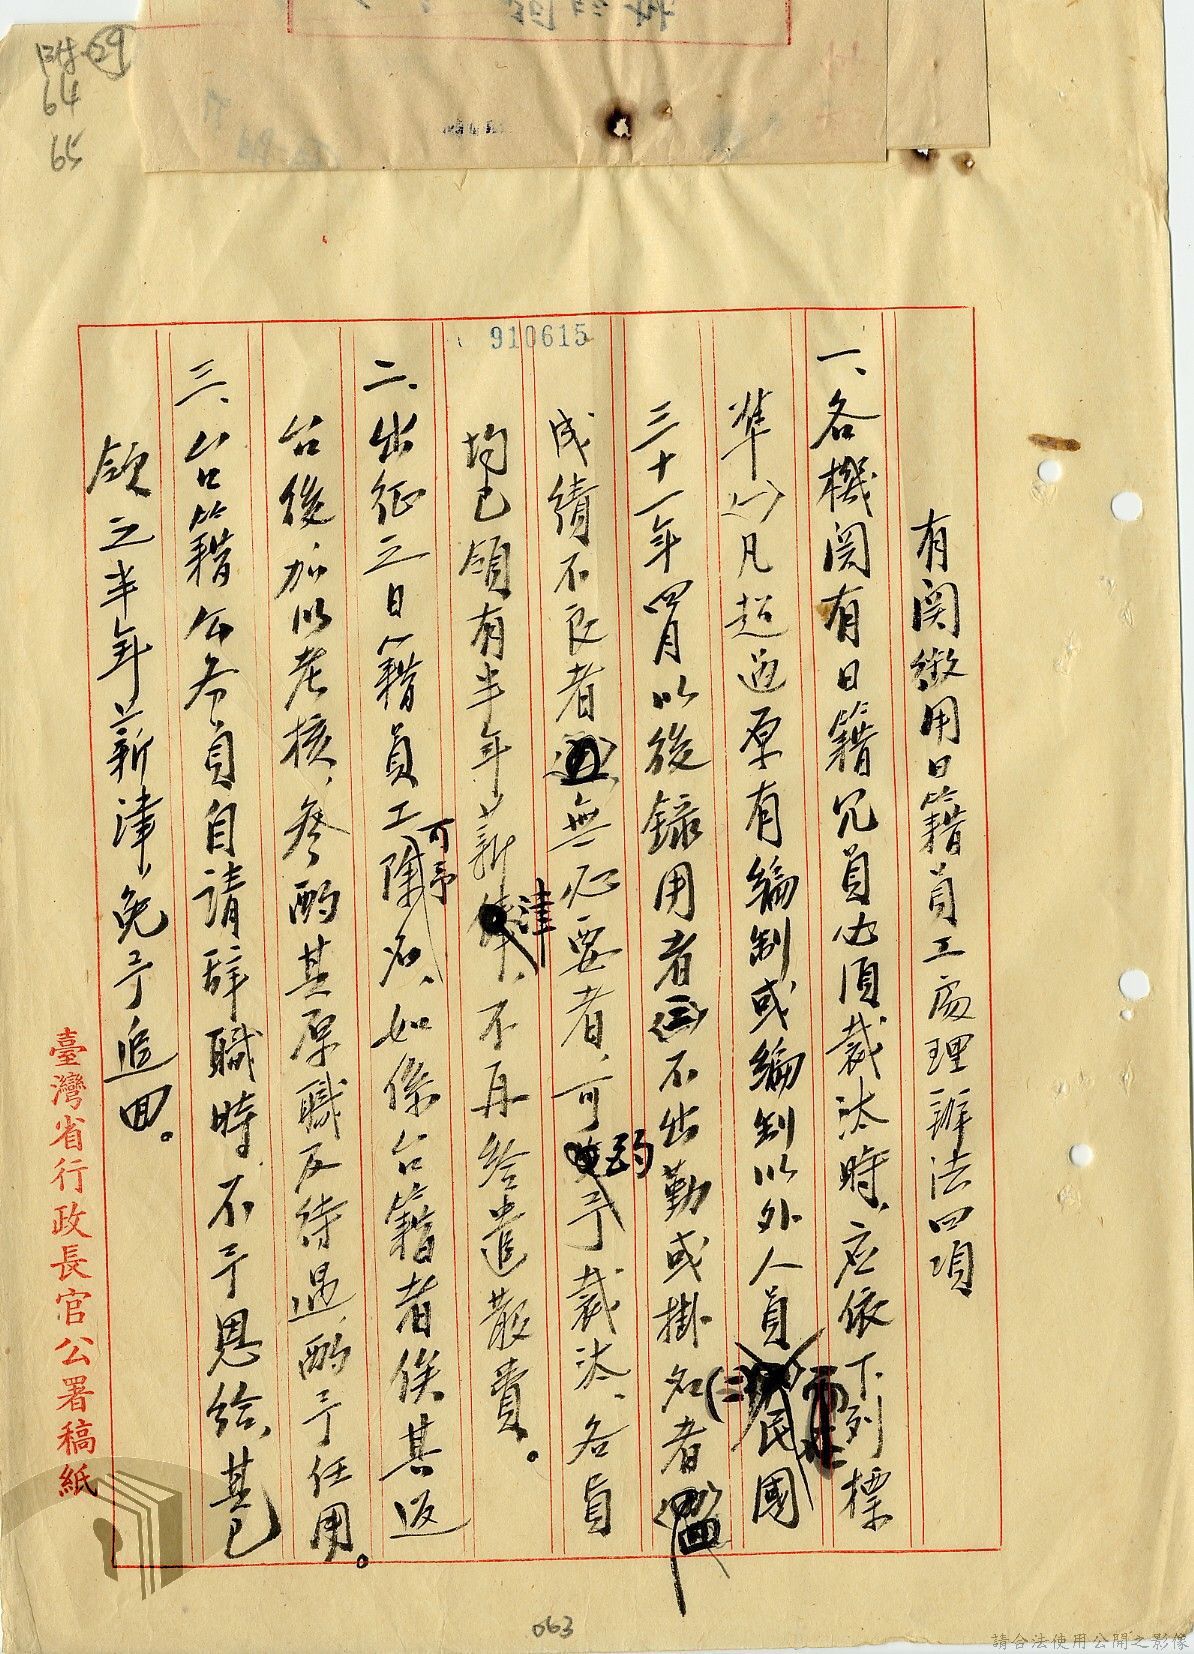 附 59
64
65
910615
有関徵用日籍員工處理辦法四項
一、各機関有日籍冗員必須裁汰時、应依下列標
準(一)凡超過原有編制或編制以外人員(二)民國
三十一年四月以後錄用者(三)不出勤或掛名者(四)
成績不良者無必要者、可酌予裁汰、各員
均已領有半年薪津、不再給遣散費。
二、出征之日籍員工可予除名、如係台籍者俟其返
台後加以考核、參酌其原職及待遇酌予任用。
三、台籍公务員自請辞職時不予恩給、其已
領之半年薪津、免予追回。
臺灣省行政長官公署稿紙
063
請合法使用公開之影像